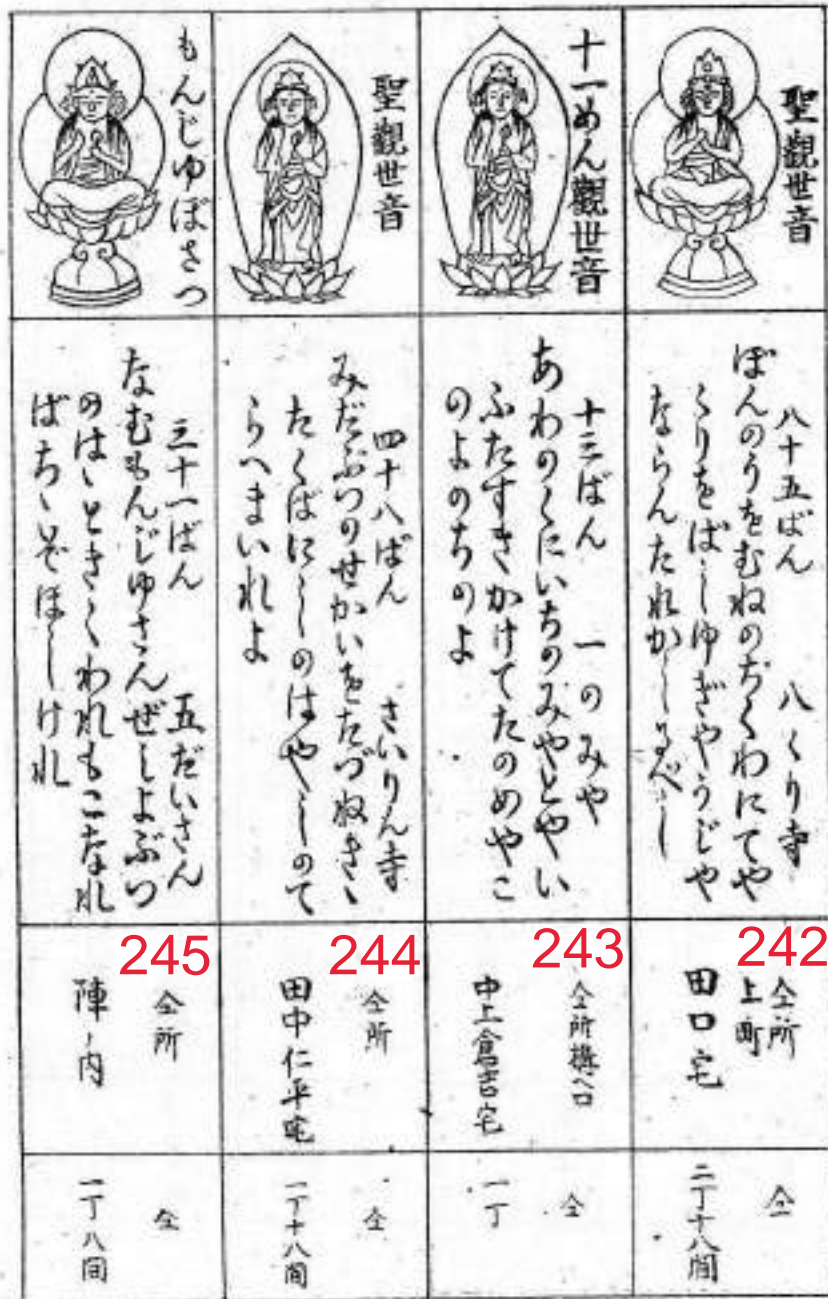 聖觀世音
八十五ばん 八くり寺
ぼんのうをむねのちくわにてや
くりをばしゆぎやうじや
ならんたれかしるべし
242
仝所
上町
田口宅
仝
二丁十八間
十一めん觀世音
十三ばん 一のみや
あわのくにいちのみやとやい
ふたすきかけてたのめやこ
のよのちのよ
243
仝所構ヘ口
中上倉吉宅
仝
一丁
聖觀世音
四十八ばん さいりん寺
みだぶつのせかいをたづねきゝ
たくばにしのはやしのて
らへまいれよ
244
仝所
田中仁平宅
仝
一丁十八間
もんじゆぼさつ
三十一ばん 五だいさん
なむもんじゆさんぜしよぶつ
のはゝときくわれもこなれ
ばちゝぞほしけれ
245
仝所
陣ノ内
仝
一丁八間